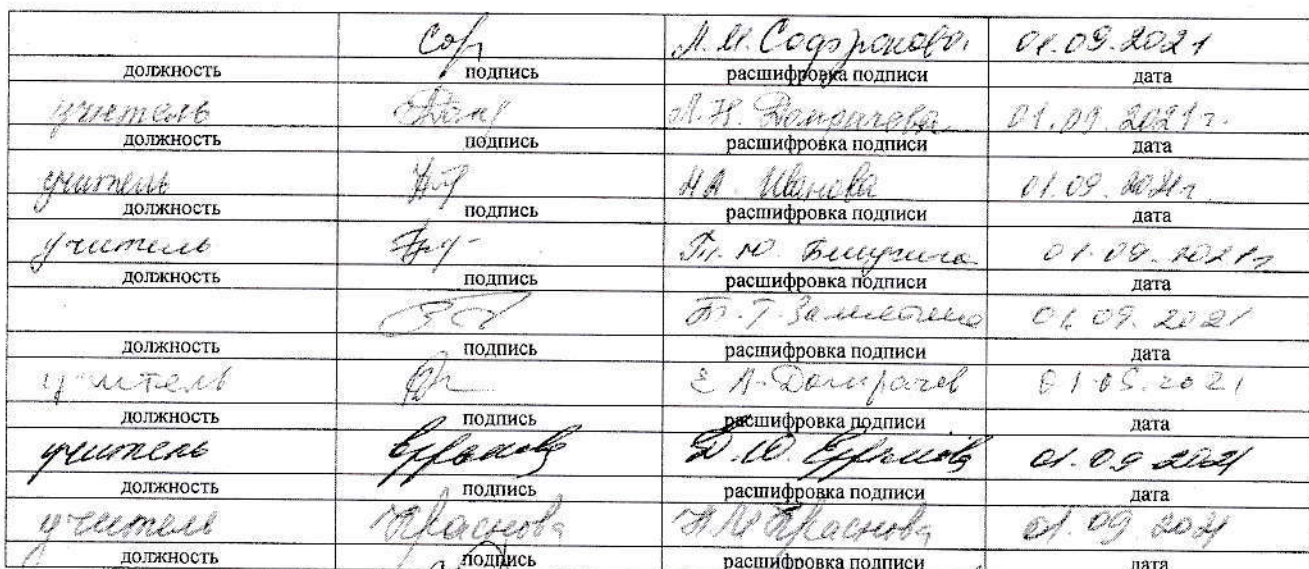 Л.М. Софронова 01.09.2021
должность подпись расшифровка подписи дата
учитель Л.Н. Домрачева 01.09.2021 г.
должность подпись расшифровка подписи дата
учитель Н.А. Иванова 01.09.2021г.
должность подпись расшифровка подписи дата
учитель Т.Ю. 01.09.2021г
должность подпись расшифровка подписи дата
Т. 01.09.2021
должность подпись расшифровка подписи дата
учитель Е.А. Домрачев 2021
должность подпись расшифровка подписи дата
учитель Д.Ю. 01.09 2021
должность подпись расшифровка подписи дата
учитель Краснова Краснова 01.09.2021
должность подпись расшифровка подписи дата